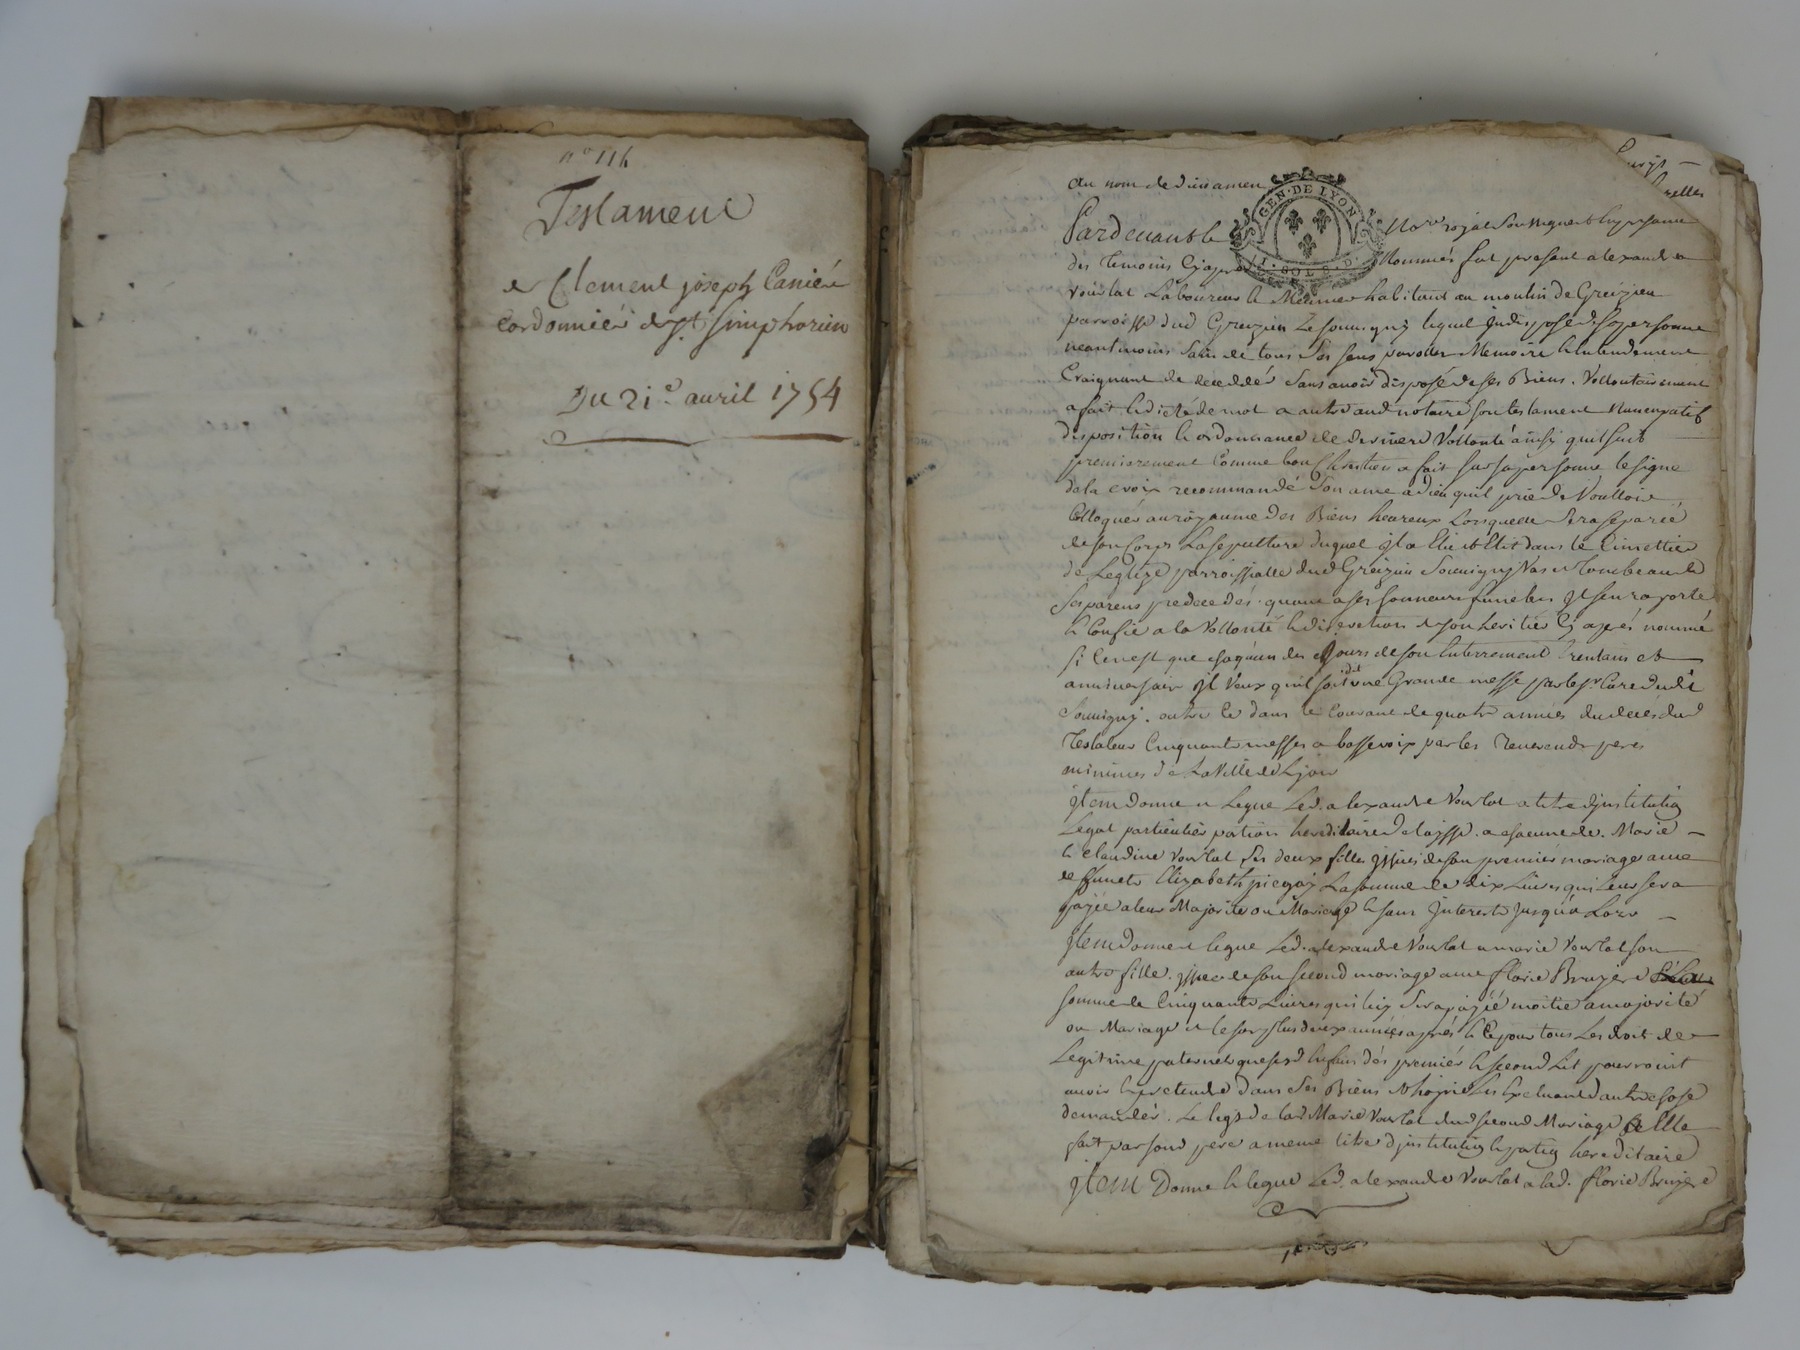 n° 114
Testament
de Clement joseph Carriére
cordonnier de st. simphorien
Du 21e. auril 1754
au nom de dieu amen
Pardeuant le No.re royal Soussigné & En presance
des Temoins Cy apres Nommés fut present alexandre
Vourlat Laboureur & Meunier habitant au moulin de Greizieu
parroisse dud Greizieu Le souuigny lequel Indisposé de sa personne
neantmoins Sain de tous Ses sens parolles Memoire & Entendement
Craignant de deceddér Sans auoir disposé de ses Biens. Vollontairement
a fait & dicté de mot a autre aud notaire son testament Nuncupatif
disposition & ordonnance de derniere Vollonté ainsy quil suit
premierement Comme bon Chretien a fait sur sa personne le signe
de la croix recommandé Son ame a Dieu quil prie de Voulloir
Colloquér au royaume des Biens heureux Lorsquelle Sera separée
de son Corps La sepulture duquel il a Elu & Elit dans le Cimettiere
de Leglize parroissialle dud Greizieu Souuigny Vas et tombeau de
Ses parens predecedés. quant a ses honneurs funebres Il sen raporte
& Confie a la Vollonté & discretion de son heritier Cy aprés nommé
si Cenest que chaquun des Jours de son Enterrement trentain et
anniuersaire Il Veux quil soit dit une Grande messe par le sr Curé dudit
Souuigny. outre Ce dans le Courant de quatre années du deces dud
Testateur Cinquante messes a basse voix par les Reuerends peres
minimes de La Ville de Lyon
Item donne & Legue Led. alexandre Vourlat a titre d'institution
Legat particuliér portion hereditaire Delaisse. a chacune de. Marie
& Claudine Vourlat Ses deux filles issües de son premier mariage auec
deffuncte Elizabeth picgay La somme de dix Liures qui Leur sera
payée a leur Majorité ou Mariage & sans Interests Jusqu'a Lors
Item donne & legue Led. alexandre Vourlat a marie Vourlat son
autre fille. issue de son second mariage auec florie Bruyere La
somme de Cinquante Liures qui luy Sera payée moitie a majorité
ou Mariage et le surplus deux années aprés & Ce pour tous Les droit de
Legitime paternels que sesd Enfans dés premiér & second Lit pourroint
auoir & pretendre Dans Ses Biens & hoirie Les Excluant d'autre chose
demandér. Le legs de lad Marie Vourlat dud second Mariage
fait par sond pere a meme titre d'institution & portion hereditaire
Item Donne & legue Led. alexandre Vourlat a lad. florie Bruyere
GEN. DE LYON